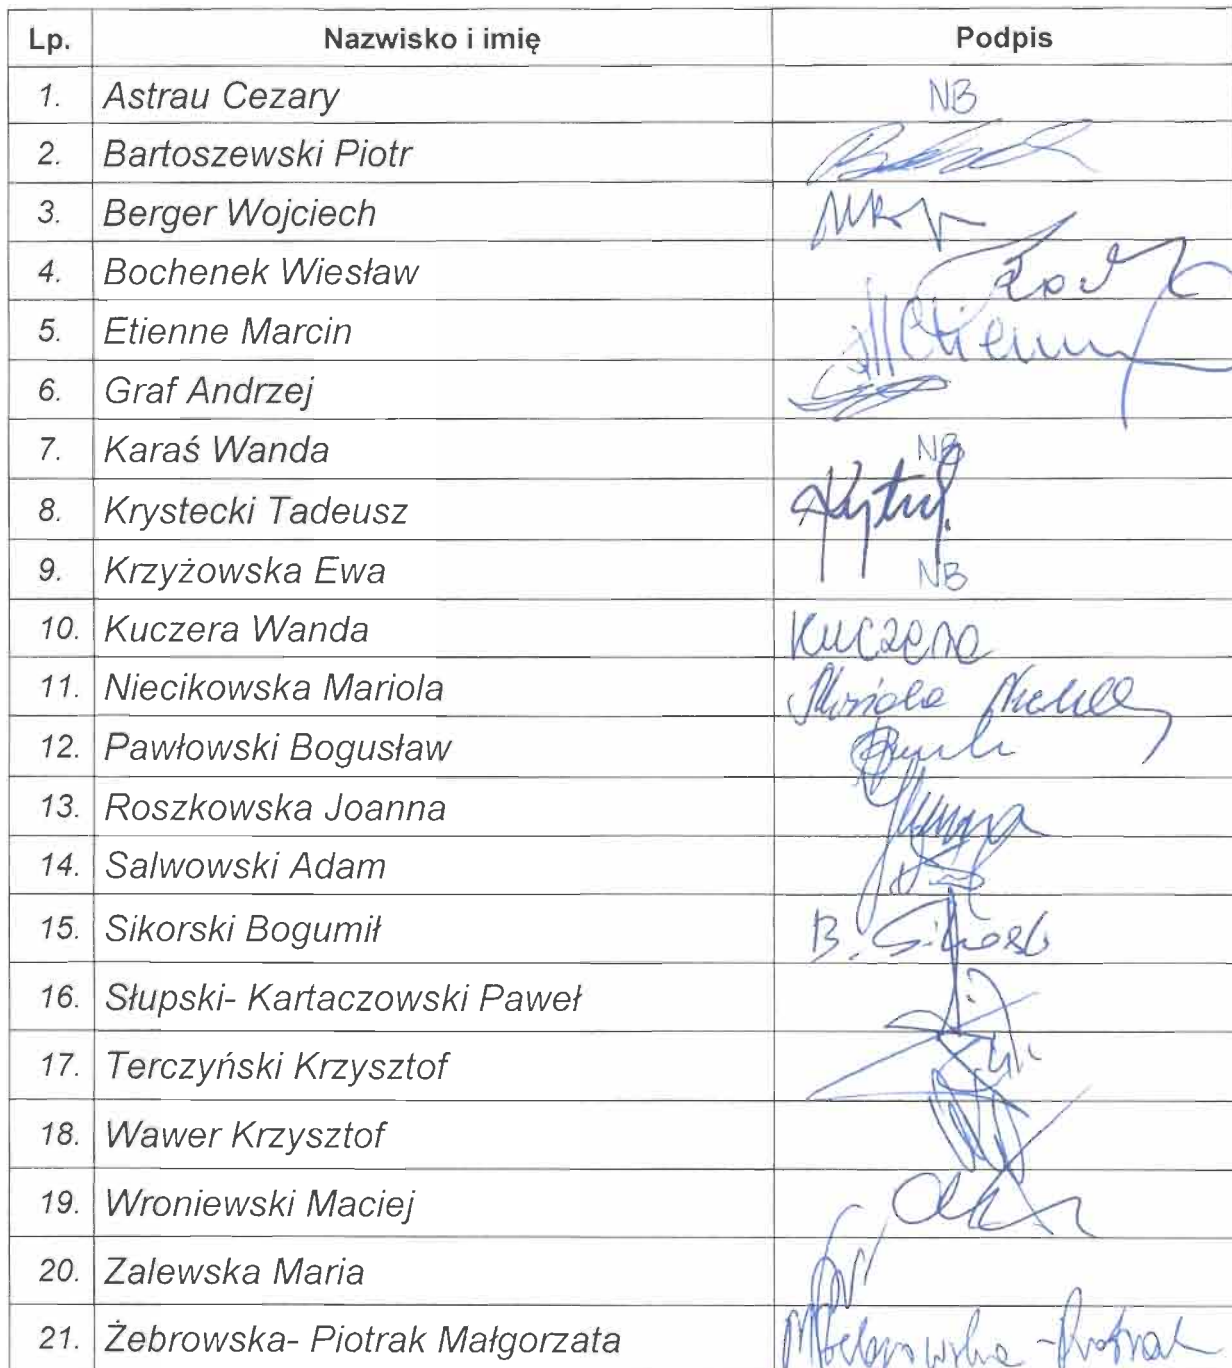 Lp. Nazwisko i imię Podpis
1. Astrau Cezary NB
2. Bartoszewski Piotr
3. Berger Wojciech
4. Bochenek Wiesław
5. Etienne Marcin MEtienne
6. Graf Andrzej
7. Karaś Wanda NB
8. Krystecki Tadeusz
9. Krzyżowska Ewa NB
10. Kuczera Wanda Kuczera
11. Niecikowska Mariola Mariola
12. Pawłowski Bogusław
13. Roszkowska Joanna
14. Salwowski Adam
15. Sikorski Bogumił B. Sikorski
16. Słupski- Kartaczowski Paweł
17. Terczyński Krzysztof
18. Wawer Krzysztof
19. Wroniewski Maciej
20. Zalewska Maria
21. Żebrowska- Piotrak Małgorzata MŻebrowska-Piotrak